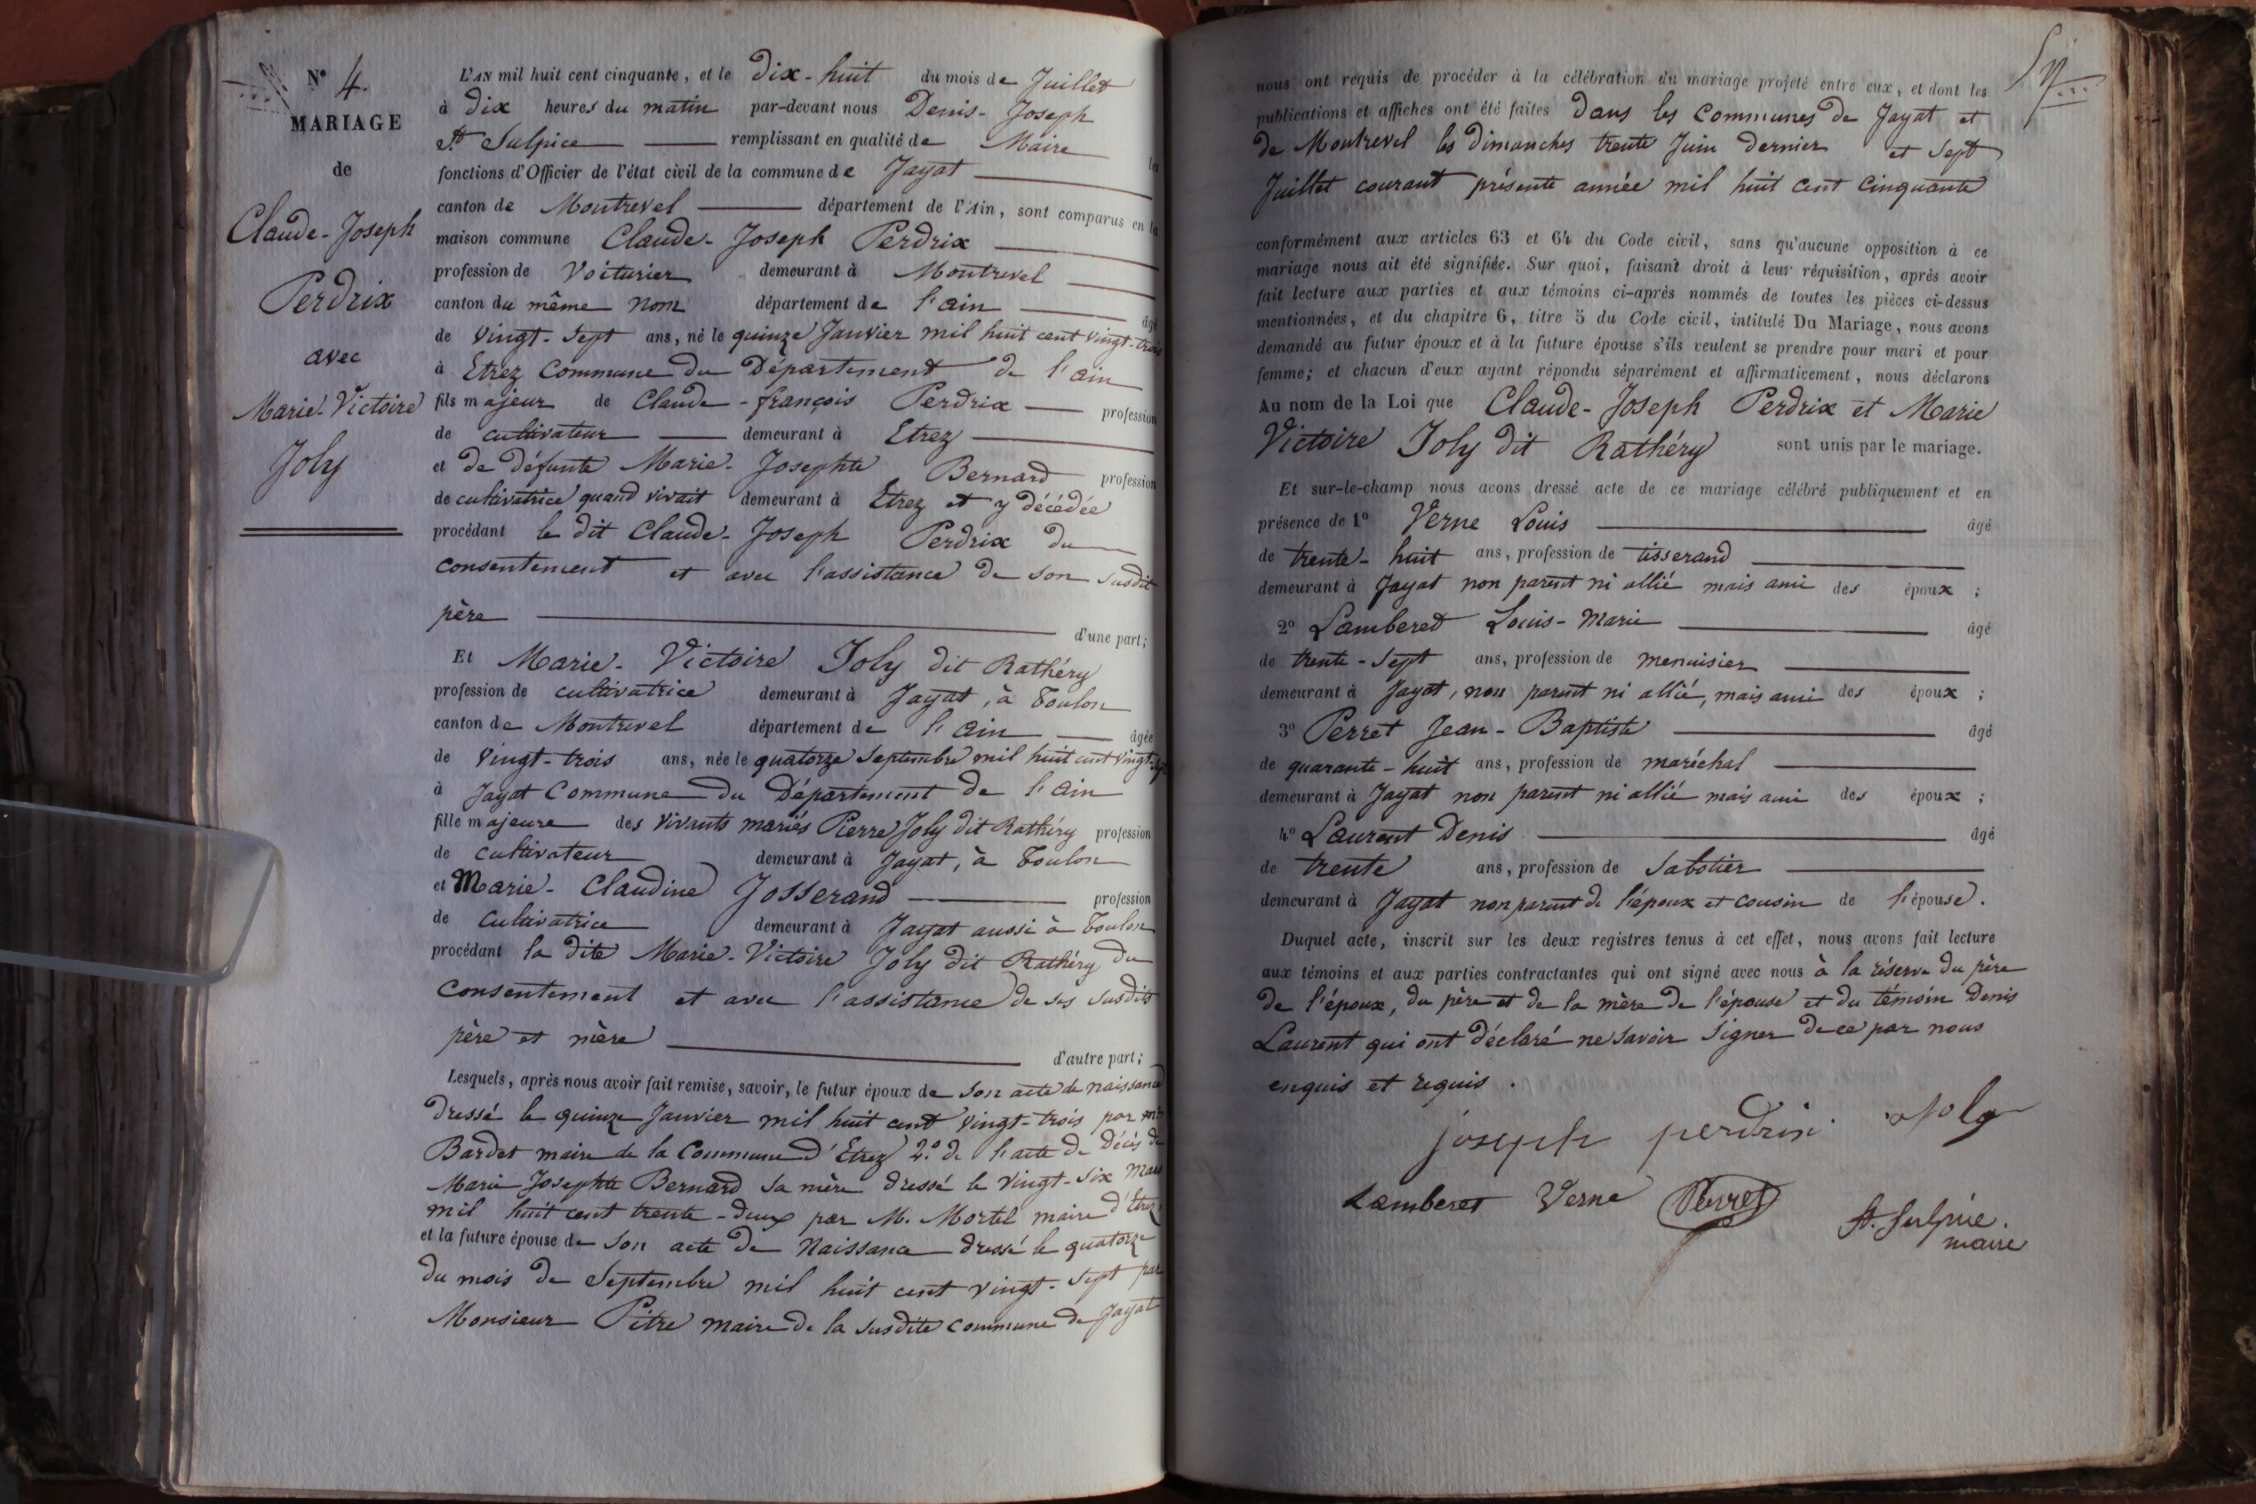 N° 4.
MARIAGE
de
Claude-Joseph
Perdrix
avec
Marie-Victoire
Joly
L'AN mil huit cent cinquante, et le dix-huit du mois de Juillet
à dix heures du matin par-devant nous Denis-Joseph
St Sulpice remplissant en qualité de Maire les
fonctions d'Officier de l'état civil de la commune de Jayat
canton de Montrevel département de l'Ain, sont comparus en la
maison commune Claude-Joseph Perdrix
profession de Voiturier demeurant à Montrevel
canton du même nom département de l'ain âgé
de vingt-sept ans, né le quinze Janvier mil huit cent vingt-trois
à Etrez Commune du Département de l'ain
fils majeur de Claude-françois Perdrix profession
de cultivateur demeurant à Etrez
et de défunte Marie-Josephte Bernard profession
de cultivatrice quand vivait demeurant à Etrez et y décédée
procédant le dit Claude-Joseph Perdrix du
consentement et avec l'assistance de son susdit
père d'une part;
Et Marie-Victoire Joly dit Rathéry
profession de cultivatrice demeurant à Jayat, à Toulon
canton de Montrevel département de l'ain âgée
de vingt-trois ans, née le quatorze septembre mil huit cent vingt-sept
à Jayat Commune du Département de l'ain
fille majeure des vivants mariés Pierre Joly dit Rathéry profession
de cultivateur demeurant à Jayat, à Toulon
et Marie-Claudine Josserand profession
de cultivatrice demeurant à Jayat aussi à Toulon
procédant la dite Marie-Victoire Joly dit Rathéry du
consentement et avec l'assistance de ses susdits
père et mère d'autre part;
Lesquels, après nous avoir fait remise, savoir, le futur époux de son acte de naissance
dressé le quinze Janvier mil huit cent vingt-trois par mr
Bardet maire de la Commune d'Etrez 2° de l'acte de Décès de
Marie Josephte Bernard sa mère dressé le vingt-six Mars
mil huit cent trente-deux par M. Mortel maire d'Etrez
et la future épouse de son acte de Naissance dressé le quatorze
du mois de Septembre mil huit cent vingt-sept par
Monsieur Pitre maire de la susdite commune de Jayat
nous ont requis de procéder à la célébration du mariage projeté entre eux, et dont les
publications et affiches ont été faites dans les Communes de Jayat et
de Montrevel les dimanches trente Juin dernier et sept
Juillet courant présente année mil huit cent cinquante
conformément aux articles 63 et 64 du Code civil, sans qu'aucune opposition à ce
mariage nous ait été signifiée. Sur quoi, faisant droit à leur réquisition, après avoir
fait lecture aux parties et aux témoins ci-après nommés de toutes les pièces ci-dessus
mentionnées, et du chapitre 6, titre 5 du Code civil, intitulé Du Mariage, nous avons
demandé au futur époux et à la future épouse s'ils veulent se prendre pour mari et pour
femme; et chacun d'eux ayant répondu séparément et affirmativement, nous déclarons
Au nom de la Loi que Claude-Joseph Perdrix et Marie
Victoire Joly dit Rathéry sont unis par le mariage.
Et sur-le-champ nous avons dressé acte de ce mariage célébré publiquement et en
présence de 1° Verne Louis âgé
de trente-huit ans, profession de tisserand
demeurant à Jayat non parent ni allié mais ami des époux ;
2° Lamberet Louis-Marie âgé
de trente-sept ans, profession de menuisier
demeurant à Jayat, non parent ni allié, mais ami des époux ;
3° Perret Jean-Baptiste âgé
de quarante-huit ans, profession de maréchal
demeurant à Jayat non parent ni allié mais ami des époux ;
4° Laurent Denis âgé
de trente ans, profession de Sabotier
demeurant à Jayat non parent de l'époux et cousin de l'épouse.
Duquel acte, inscrit sur les deux registres tenus à cet effet, nous avons fait lecture
aux témoins et aux parties contractantes qui ont signé avec nous à la réserve du père
de l'époux, du père et de la mère de l'épouse et du témoin Denis
Laurent qui ont déclaré ne savoir signer de ce par nous
enquis et requis.
joseph perdrix Joly
Lamberet Verne Perret
St. Sulpice.
maire